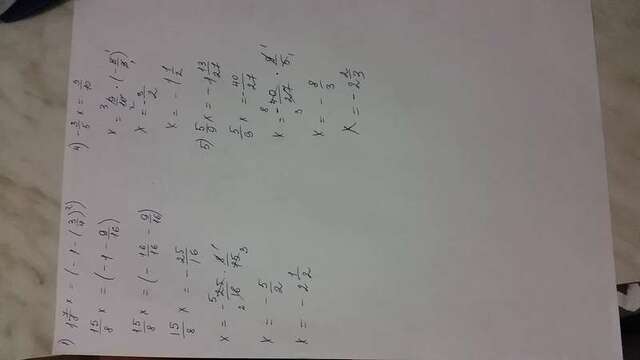 1) 1 7/8 x = (-1 - (3/4)²)
15/8 x = (-1 - 9/16)
15/8 x = (- 16/16 - 9/16)
15/8 x = - 25/16
x = - 25/16 · 8/15 5 1 2 3
x = - 5/2
x = - 2 1/2
4) - 3/5 x = 9/10
x = 9/10 · (- 5/3) 3 1 2 1
x = - 3/2
x = - 1 1/2
5) 5/9 x = - 1 13/27
5/9 x = - 40/27
x = - 40/27 · 9/5 8 1 3 1
x = - 8/3
x = - 2 2/3